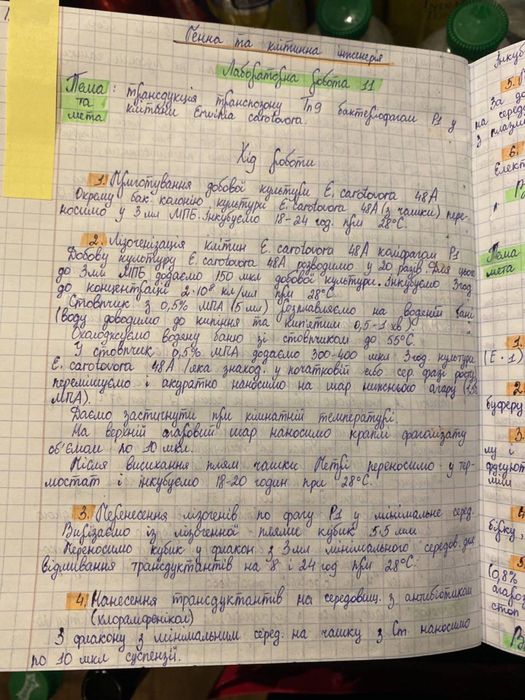 Генна та клітинна інженерія
Лабораторна робота 11
Тема та мета: трансдукція транспозону Tn9 бактеріофагам P1 у
клітини Erwinia carotovora.
Хід роботи
1. Приготування добової культури E. carotovora 48A
Окрему бак. колонію культури E. carotovora 48A (з чашки) пере-
носимо у 3 мл МПБ. Інкубуємо 18-24 год. при 28°C.
2. Лізогенізація клітин E. carotovora 48A коліфагам P1
Добову культуру E. carotovora 48A розводимо у 20 разів. Для цього
до 3 мл МПБ додаємо 150 мкл добової культури. Інкубуємо 3 год
до концентрації 2·10⁸ кл/мл при 28°C.
Стовпчик з 0,5% МПА (5 мл) розплавляємо на водяній бані
(воду доводимо до кипіння та кип'ятим 0,5-1 хв).
Охолоджуємо водяну баню зі стовпчиком до 55°C.
У стовпчик 0,5% МПА додаємо 300-400 мкл 3 год. культури
E. carotovora 48A (яка знаход. у початковій або сер. фазі росту),
перемішуємо і акуратно наносимо на шар нижнього агару (1,5%
МПА).
Даємо застигнути при кімнатній температурі.
На верхній агаровий шар наносимо краплі фаголізату
об'ємом по 10 мкл.
Після висихання плям чашки Петрі переносимо у тер-
мостат і інкубуємо 18-20 годин при 28°C.
3. Перенесення лізогенів по фагу P1 у мінімальне серед.
Вирізаємо із лізогенної плями кубик 5·5 мм
Переносимо кубик у флакон з 3 мл мінімального середов. для
відмивання трансдуктантів на 8 і 24 год при 28°C.
4. Нанесення трансдуктантів на середовищ. з антибіотиком
(хлорамфенікол)
З флакону з мінімальним серед. на чашку з Cm наносимо
по 10 мкл суспензії.
5.
За до
на серед
з плазмі
6.
Елект
Тема
мета
1.
(E·1)
2.
буферу
3.
му і
4.
5.
(0,8%
агароз
стоп